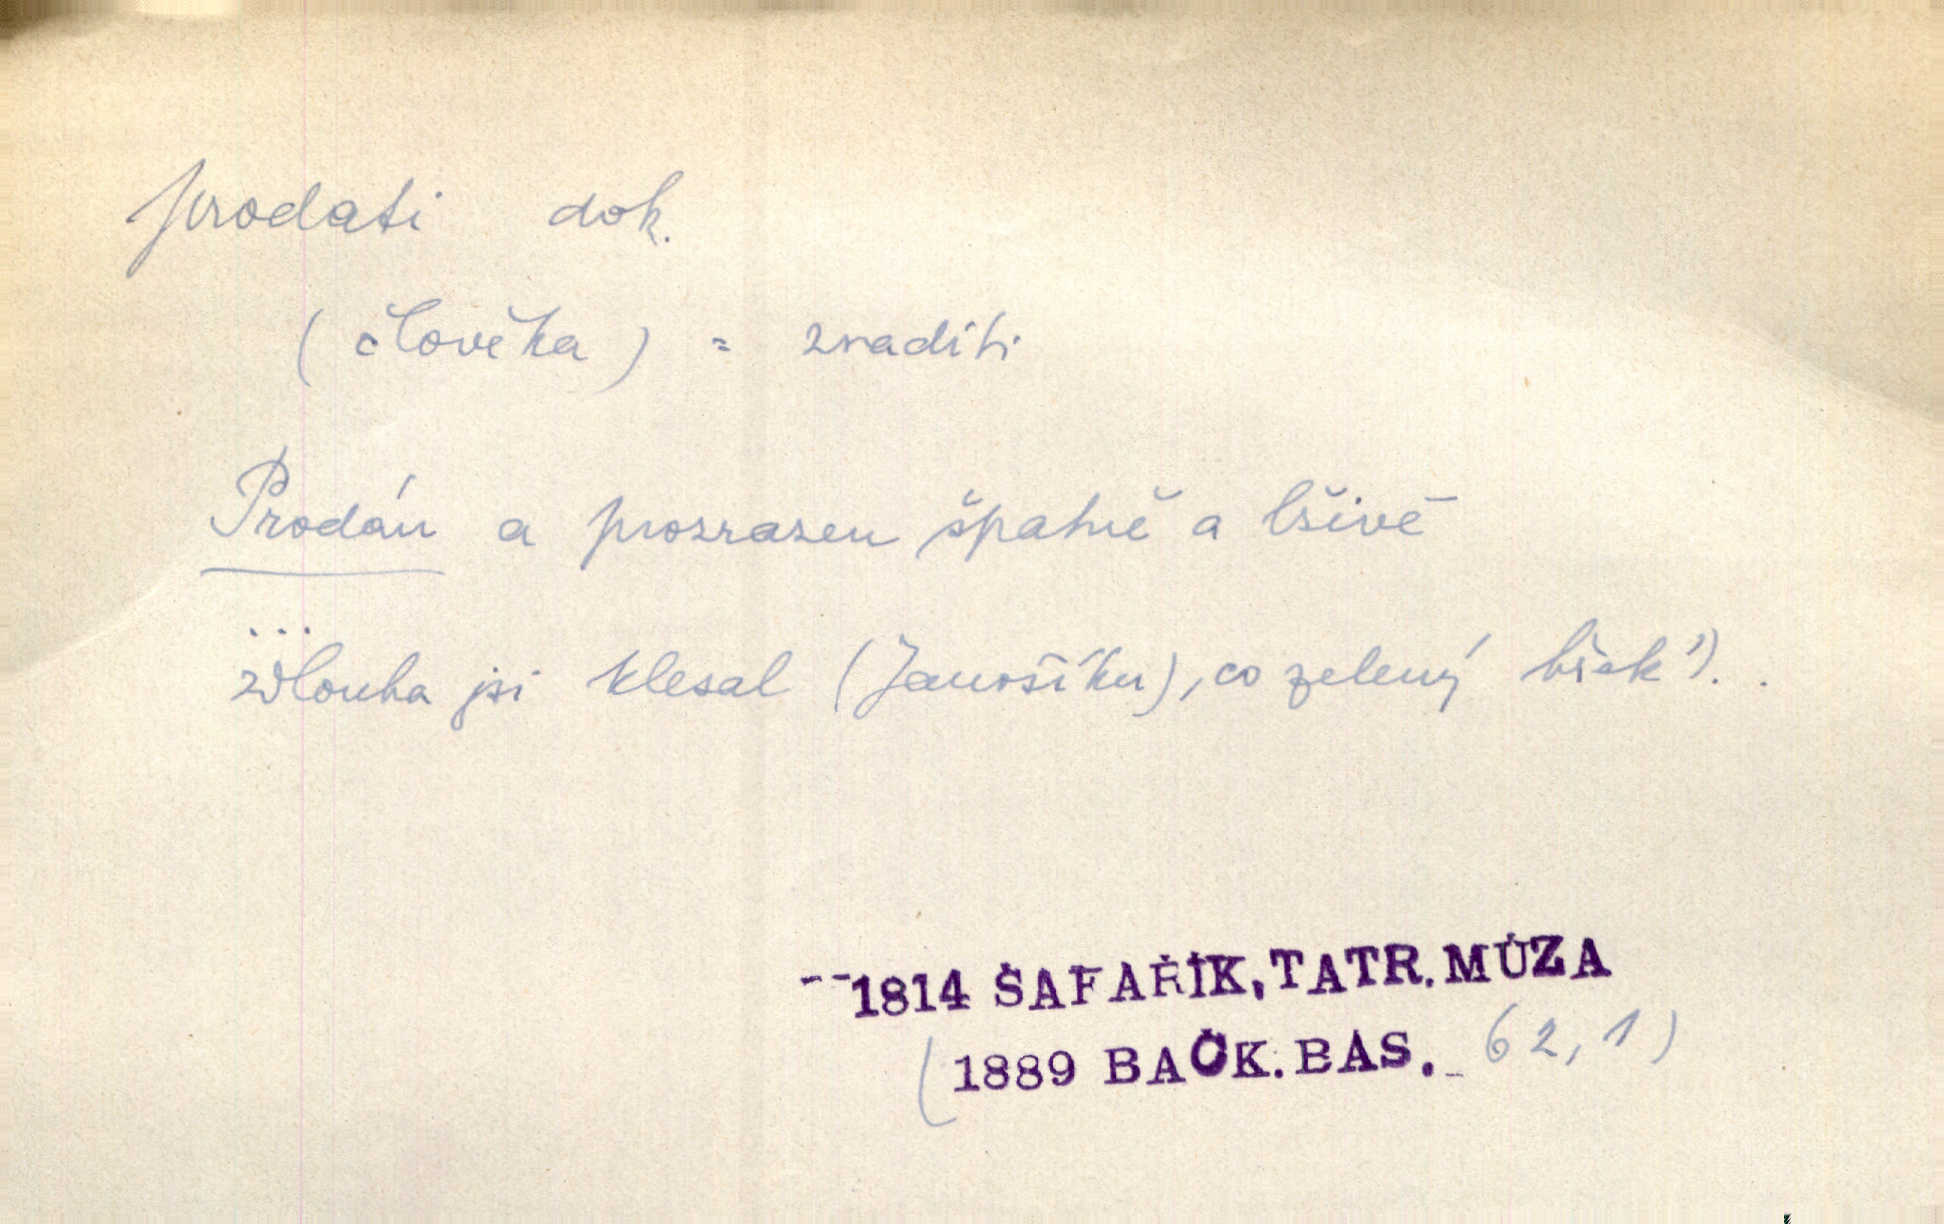 prodati dok.
(člověka) = zraditi
Prodán a prozrazen špatně a lživě
... zdlouha jsi klesal (Janošíku), co zelený
--1814 ŠAFAŘÍK, TATR. MÚZA
(1889 BAČK. BÁS. 62,1)